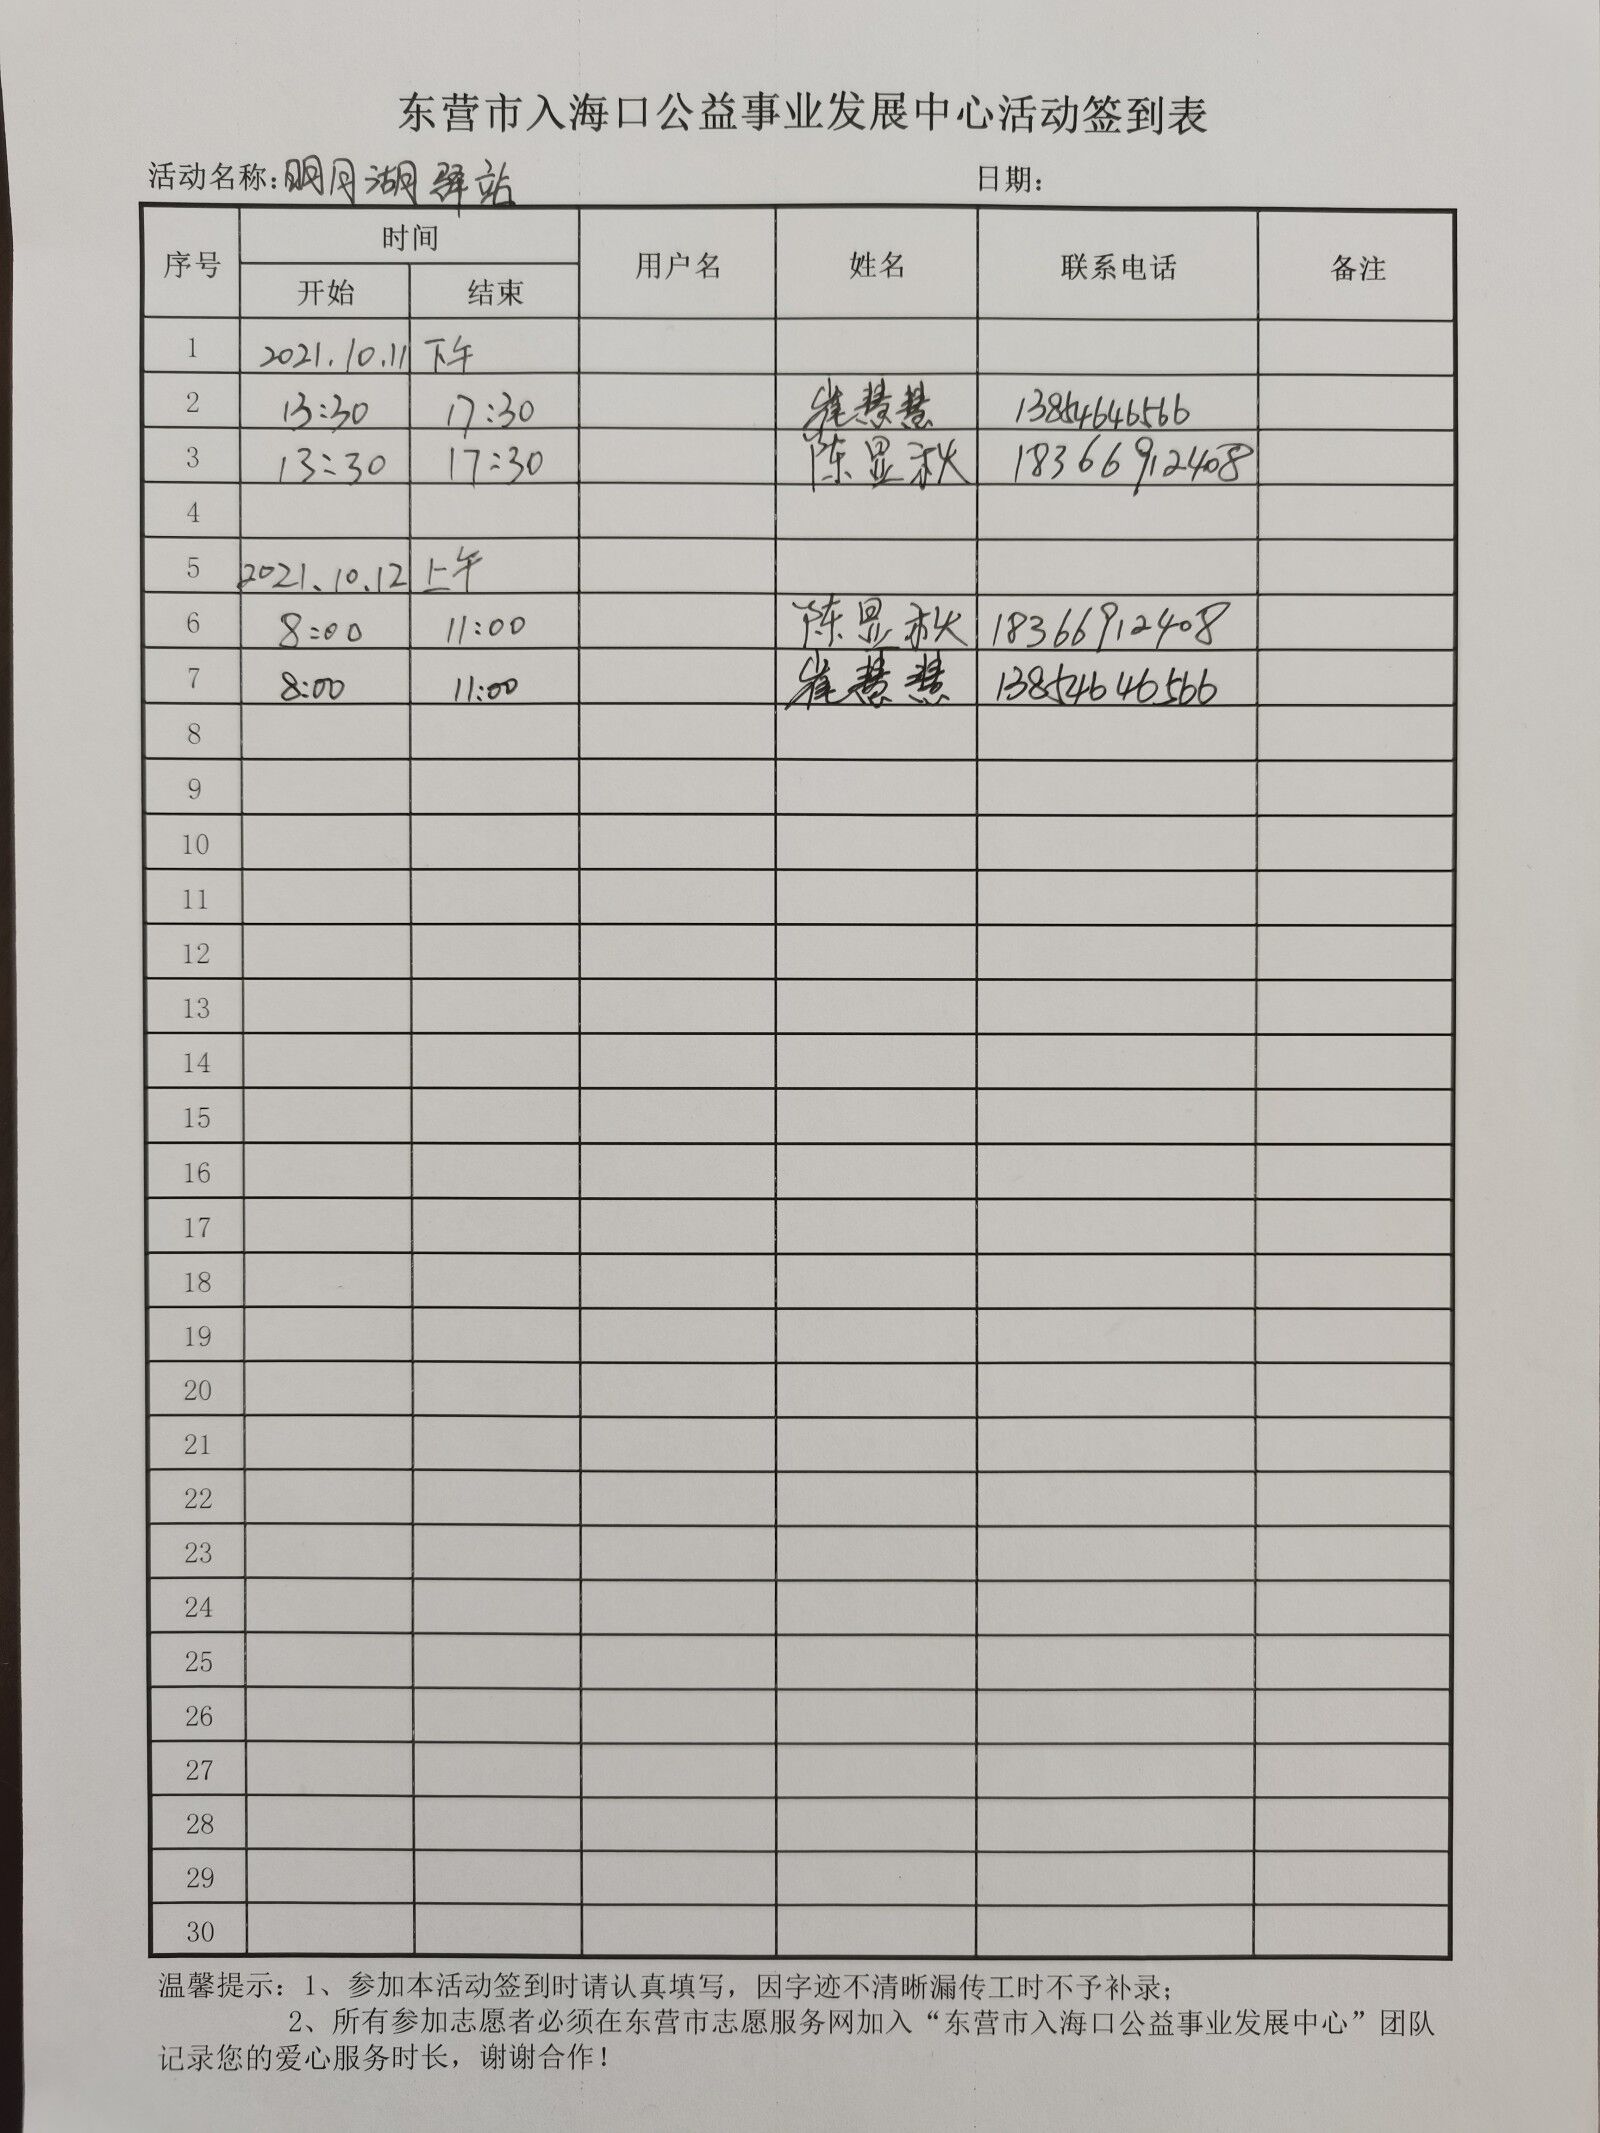 东营市入海口公益事业发展中心活动签到表
活动名称：明月湖驿站 日期：
序号 时间 用户名 姓名 联系电话 备注
开始 结束
1 2021.10.11 下午
2 13:30 17:30 崔慧慧 13854646566
3 13:30 17:30 陈显秋 18366912408
4
5 2021.10.12 上午
6 8:00 11:00 陈显秋 18366912408
7 8:00 11:00 崔慧慧 13854646566
8
9
10
11
12
13
14
15
16
17
18
19
20
21
22
23
24
25
26
27
28
29
30
温馨提示：1、参加本活动签到时请认真填写，因字迹不清晰漏传工时不予补录；
2、所有参加志愿者必须在东营市志愿服务网加入“东营市入海口公益事业发展中心”团队
记录您的爱心服务时长，谢谢合作！